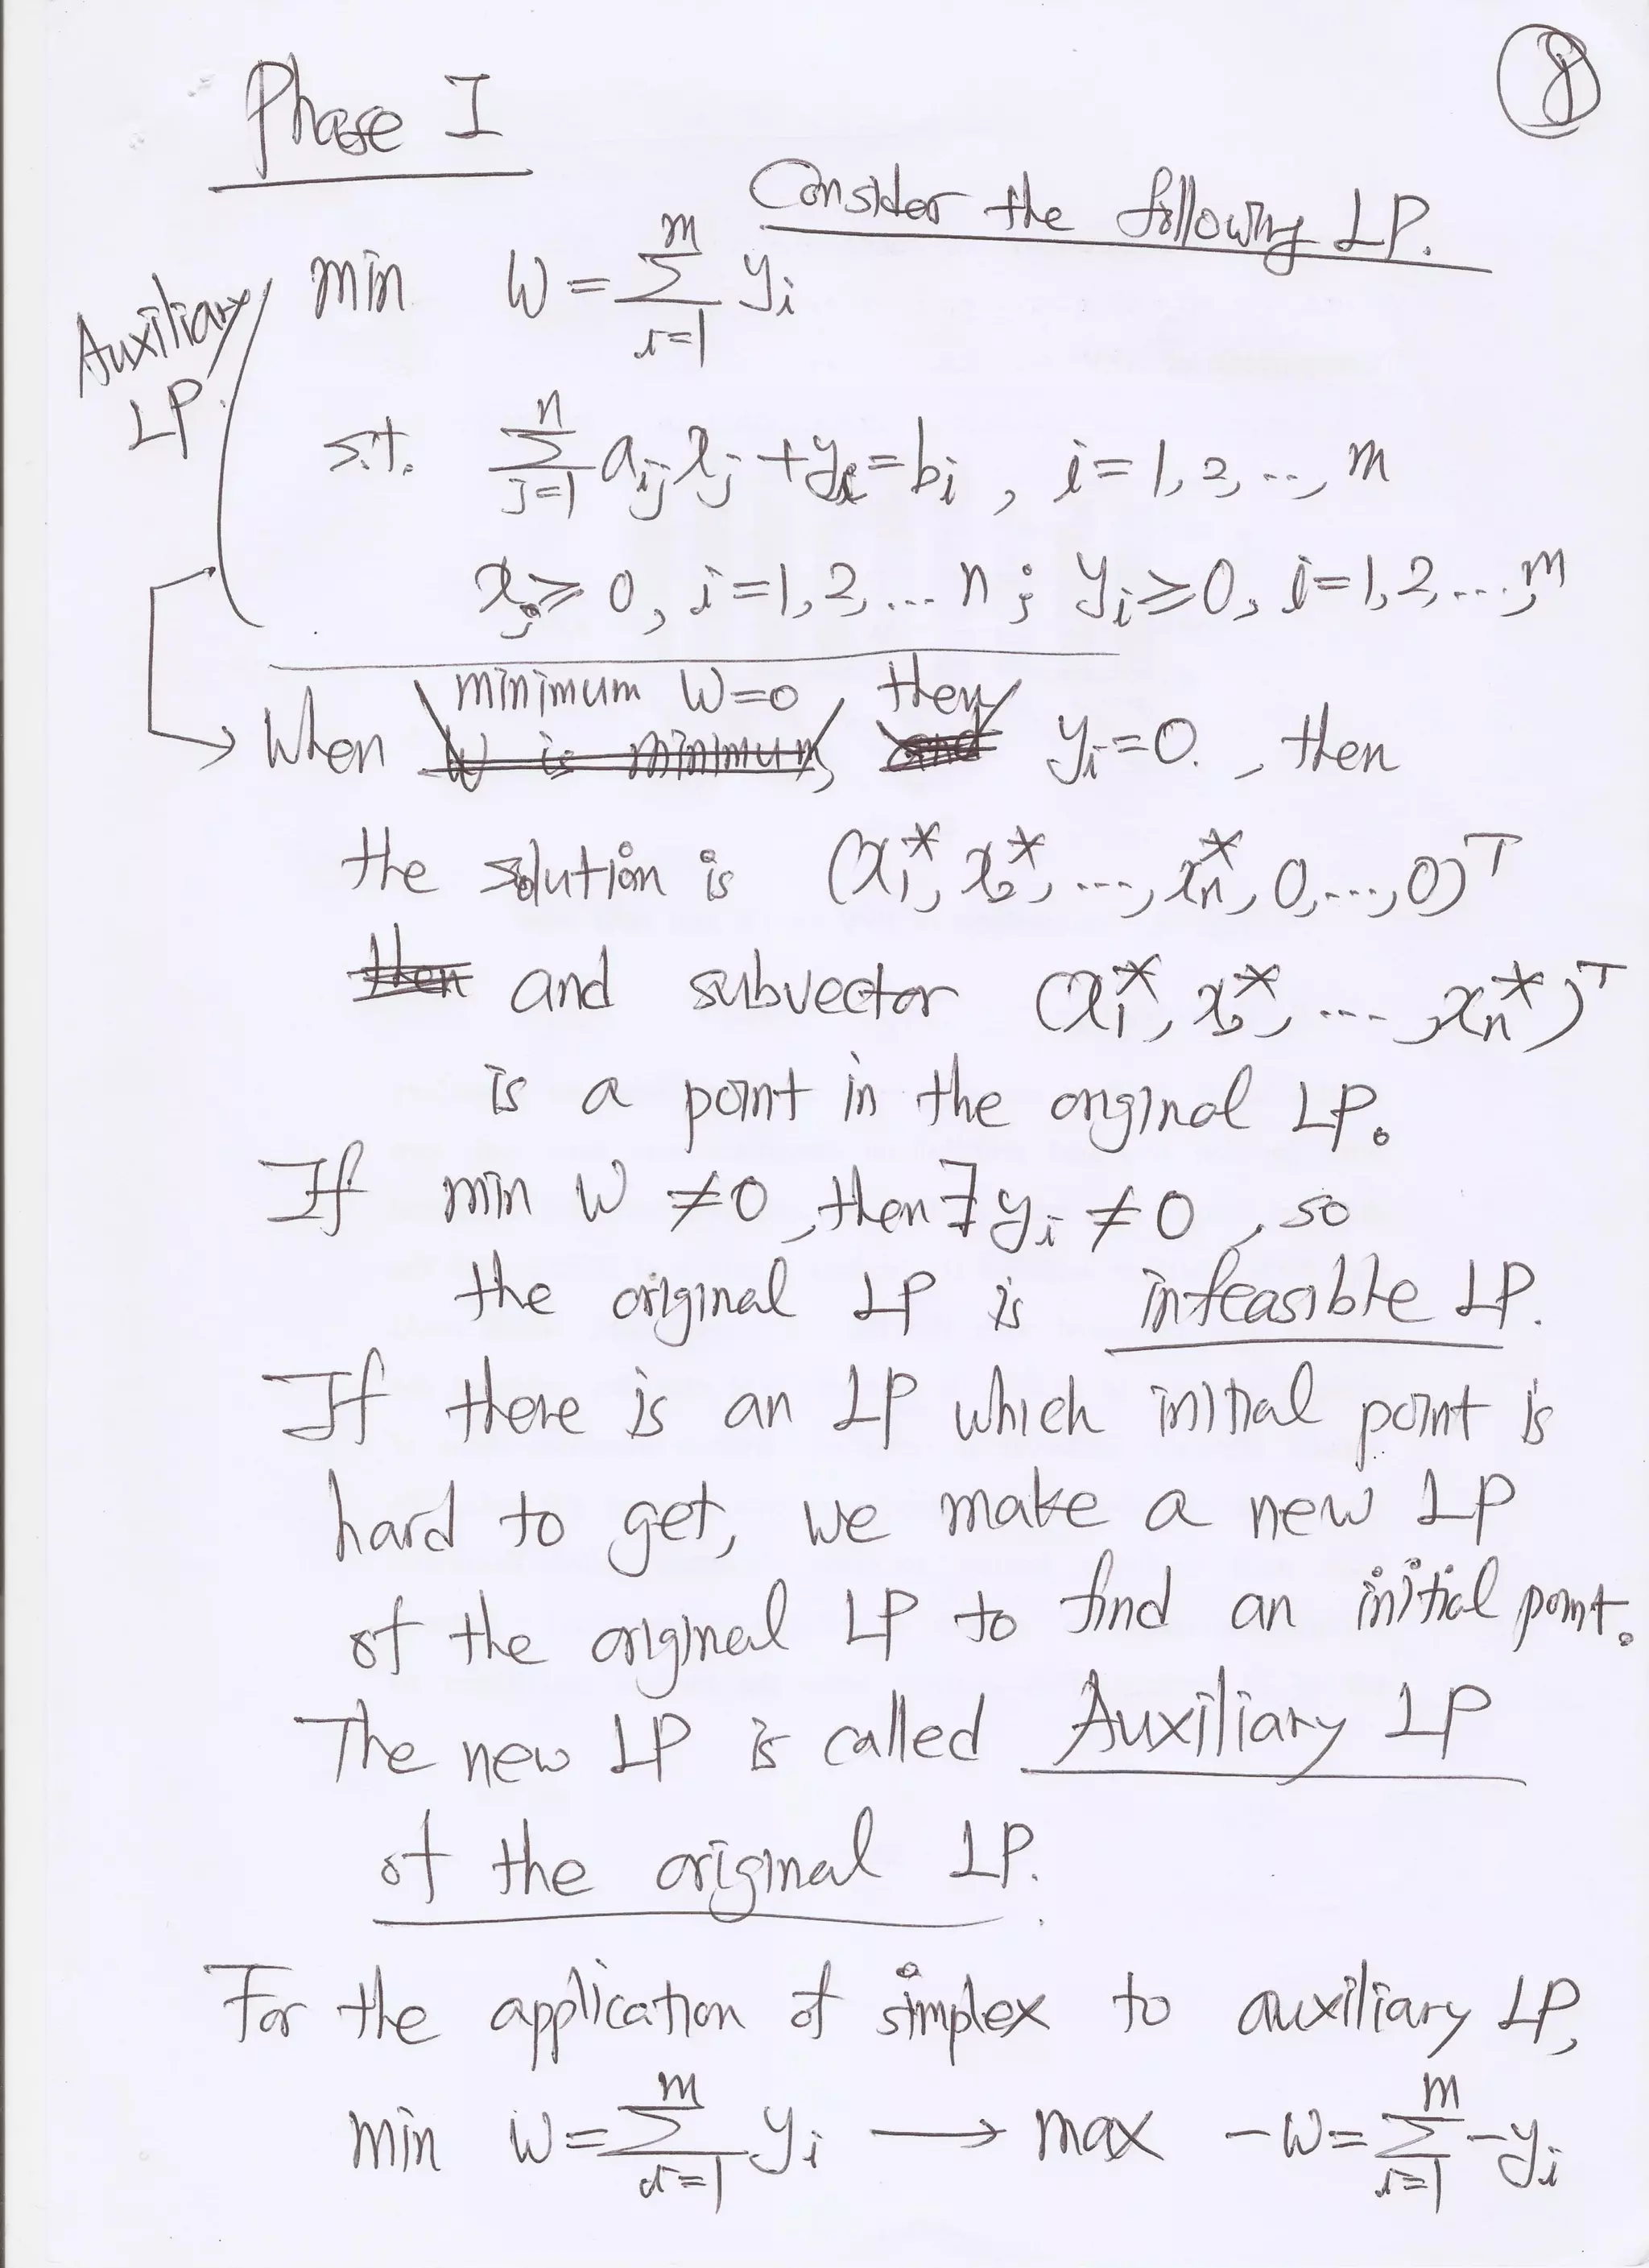 8
Phase I
Consider the following LP.
Auxiliary
LP.
min W = \sum_{i=1}^{m} y_i
s.t. \sum_{j=1}^{n} a_{ij} x_j + y_i = b_i , i = 1, 2, ..., m
x_j ≥ 0, i = 1, 2, ... n ; y_i ≥ 0, i = 1, 2, ..., m
minimum W=0 , then
When W is minimum, and y_i = 0. , then
the solution is (x_1^*, x_2^*, ..., x_n^*, 0, ..., 0)^T
then and subvector (x_1^*, x_2^*, ..., x_n^*)^T
is a point in the original LP.
If min W ≠ 0, then ∃ y_i ≠ 0 , so
the original LP is infeasible LP.
If there is an LP which initial point is
hard to get, we make a new LP
of the original LP to find an initial point.
The new LP is called Auxiliary LP
of the original LP.
For the application of simplex to auxiliary LP,
min W = \sum_{i=1}^{m} y_i → max -W = \sum_{i=1}^{m} -y_i